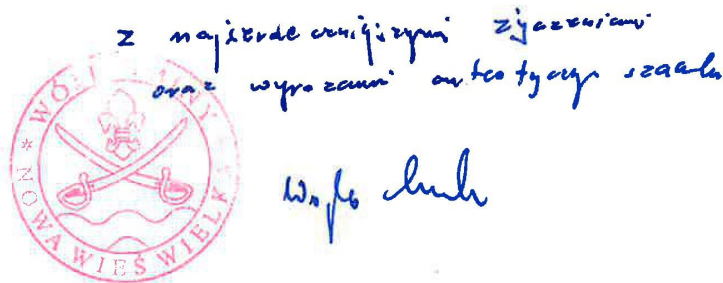 z najserdeczniejszymi życzeniami
oraz wyrazami autentycznego szacunku
WÓJT GMINY
* NOWA WIEŚ WIELKA